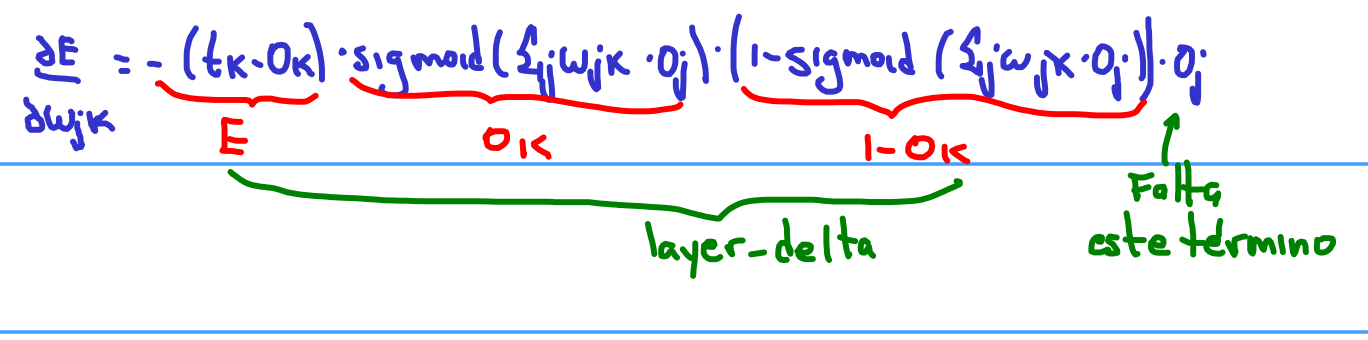 ∂E/∂wjk = - (tk - Ok) · sigmoid(Σj wjk · Oj) · (1 - sigmoid (Σj wjk · Oj)) · Oj
E OK 1-OK
layer_delta
Falta
este término